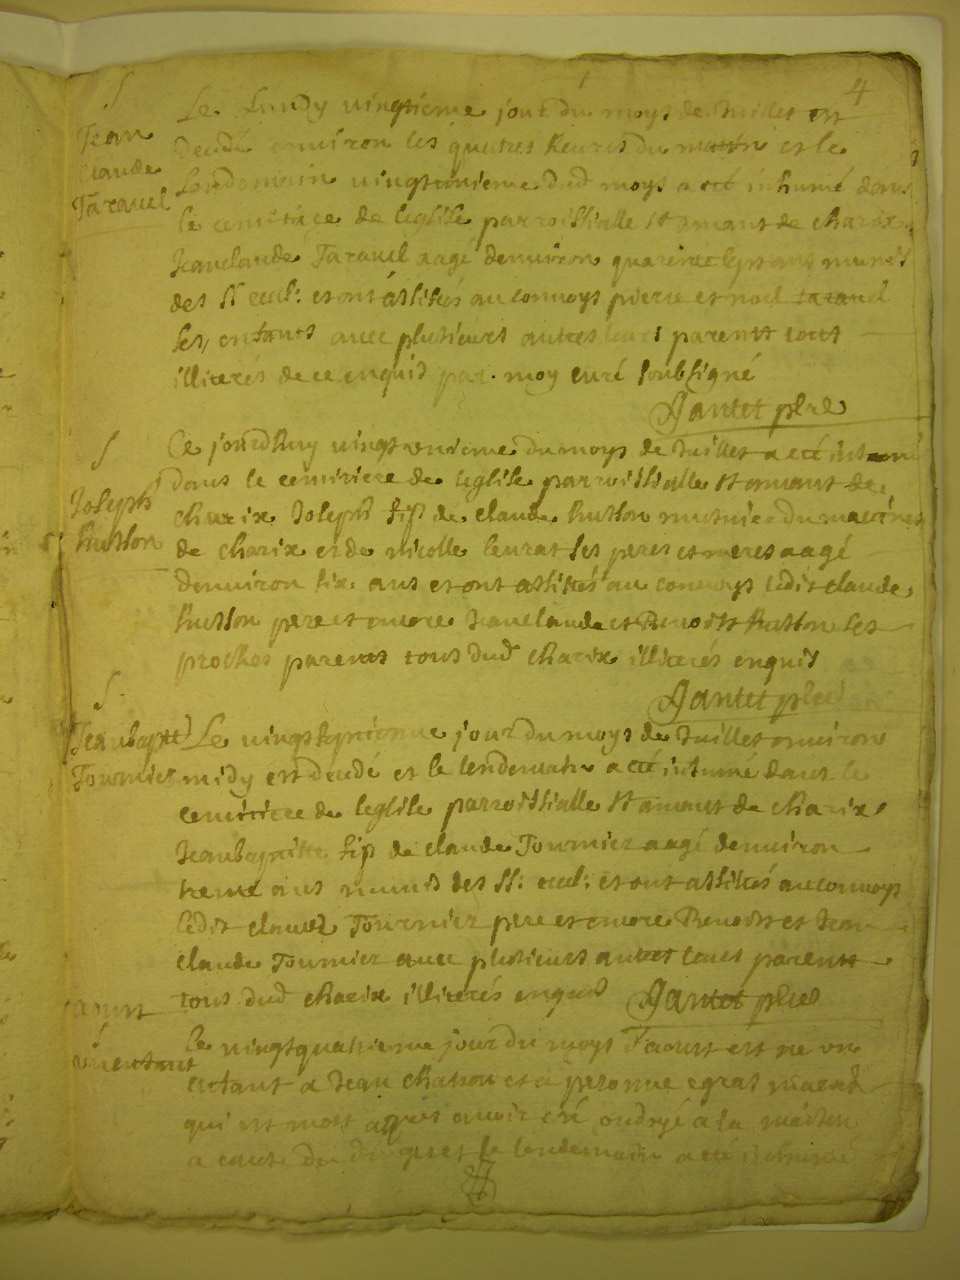 4
S
Jean
Claude
Taravel
Le Lundy vingtieme jour du moys de Juillet est
decedé environ les quatres heures du matin et le
Lendemain vingtunieme dud moys a eté inhumé dans
le cemitiere de leglise parroissialle st amant de charix
Jeanclaude Taravel aagé denviron quarente sept ans munis
des SS eccl: et ont assistés au convoys pierre et noel taravel
ses enfants avec plusieurs autres leurs parents touts
illiterés de ce enquis par moy curé soubsigné
Jantet pbre
S
Joseph
hutton
Ce jourdhuy vingt unieme du moys de Juillet a eté inhumé
dans le cemitiere de leglise parroissialle st amant de
charix Joseph fils de claude hutton
de charix et de nicolle ses peres et meres aagé
denviron six ans et ont assistés au convoys ledit claude
hutton pere et encore Jeanclaude et Benoist hutton ses
proches parents tous dud charix illiterés enquis
Jantet pbre
S
Jeanbaptte
Tournier
Le vingt septieme jour du moys de Juillet environ
midy est decedé et le lendemain a eté inhumé dans le
cemitiere de leglise parroissialle st amant de charix
Jeanbaptiste fils de claude Tournier aagé denviron
trente ans munis des SS: eccl: et ont assistés au convoys
ledit claude Tournier pere et encore Benoist et Jean
claude Tournier avec plusieurs autres leurs parents
tous dud charix illiterés enquis Jantet pbre
aoust
S
un enfant
le vingt quatrieme jour du moys d'aoust est né un
enfant a Jean et a peronne egraz mariés
qui est mort apres avoir eté ondoyé a la maison
a cause du danger et le lendemain a eté inhumé